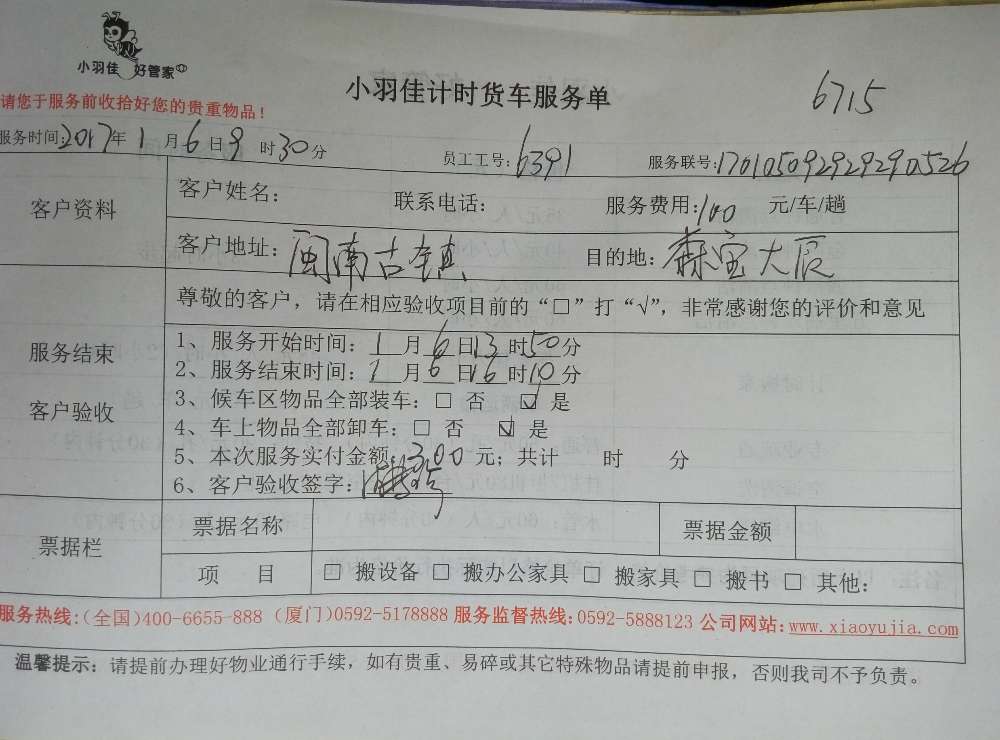 小羽佳 好管家
小羽佳计时货车服务单
6715
请您于服务前收拾好您的贵重物品！
服务时间：2017年1月6日9时30分 员工工号：6391 服务联号：
客户资料
客户姓名： 联系电话： 服务费用：100 元/车/趟
客户地址：闽南古镇 目的地：森宝大辰
尊敬的客户，请在相应验收项目前的“□”打“√”，非常感谢您的评价和意见
服务结束
客户验收
1、服务开始时间：1月6日13时50分
2、服务结束时间：1月6日16时10分
3、候车区物品全部装车：□ 否 ☑ 是
4、车上物品全部卸车：□ 否 ☑ 是
5、本次服务实付金额：300元；共计 时 分
6、客户验收签字：
票据栏
票据名称 票据金额
项 目 □ 搬设备 □ 搬办公家具 □ 搬家具 □ 搬书 □ 其他：
服务热线：(全国)400-6655-888 (厦门)0592-5178888 服务监督热线：0592-5888123 公司网站：www.xiaoyujia.com
温馨提示：请提前办理好物业通行手续，如有贵重、易碎或其它特殊物品请提前申报，否则我司不予负责。